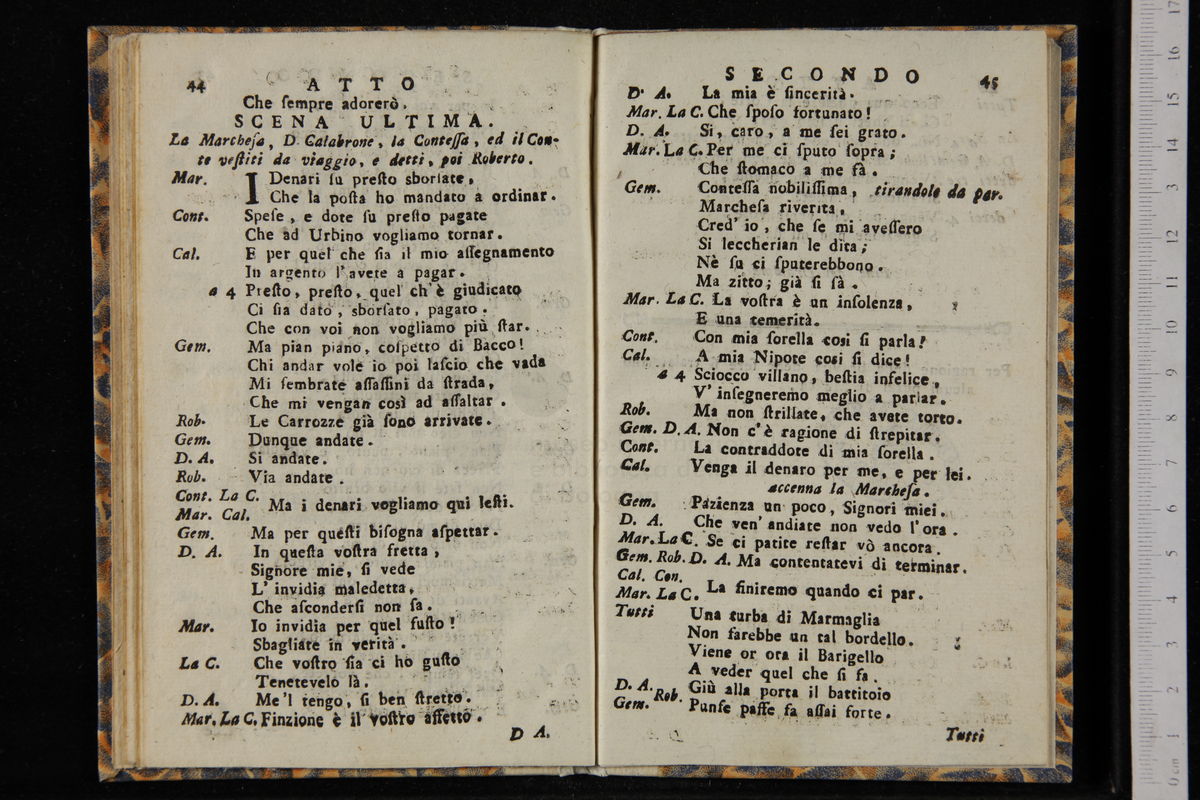 44 ATTO
Che ſempre adorerò.
SCENA ULTIMA.
La Marcheſa, D. Calabrone, la Conteſſa, ed il Con-
te veſtiti da viaggio, e detti, poi Roberto.
Mar. I Denari ſu preſto sborſate,
Che la poſta ho mandato a ordinar.
Cont. Speſe, e dote ſu preſto pagate
Che ad Urbino vogliamo tornar.
Cal. E per quel che ſia il mio aſſegnamento
In argento l'avete a pagar.
a 4 Preſto, preſto, quel ch'è giudicato
Ci ſia dato, sborſato, pagato.
Che con voi non vogliamo più ſtar.
Gem. Ma pian piano, coſpetto di Bacco!
Chi andar vole io poi laſcio che vada
Mi ſembrate aſſaſſini da ſtrada,
Che mi vengan così ad aſſaltar.
Rob. Le Carrozze già ſono arrivate.
Gem. Dunque andate.
D. A. Si andate.
Rob. Via andate.
Cont. La C.
Mar. Cal. Ma i denari vogliamo qui leſti.
Gem. Ma per queſti biſogna aſpettar.
D. A. In queſta voſtra fretta,
Signore mie, ſi vede
L' invidia maledetta,
Che aſconderſi non ſa.
Mar. Io invidia per quel fuſto!
Sbagliate in verità.
La C. Che voſtro ſia ci ho guſto
Tenetevelo là.
D. A. Me'l tengo, ſi ben ſtretto.
Mar. La C. Finzione è il voſtro affetto.
D A.
SECONDO 45
D. A. La mia è ſincerità.
Mar. La C. Che ſpoſo fortunato!
D. A. Si, caro, a me ſei grato.
Mar. La C. Per me ci ſputo ſopra;
Che ſtomaco a me fà.
Gem. Conteſſa nobiliſſima, tirandole da par.
Marcheſa riverita,
Cred' io, che ſe mi aveſſero
Si leccherian le dita;
Nè ſu ci ſputerebbono.
Ma zitto; già ſi ſà.
Mar. La C. La voſtra è un inſolenza,
E una temerità.
Cont. Con mia ſorella coſi ſi parla!
Cal. A mia Nipote coſi ſi dice!
a 4 Sciocco villano, beſtia infelice,
V' inſegneremo meglio a parlar.
Rob. Ma non ſtrillate, che avete torto.
Gem. D. A. Non c'è ragione di ſtrepitar.
Cont. La contraddote di mia ſorella.
Cal. Venga il denaro per me, e per lei.
accenna la Marcheſa.
Gem. Pazienza un poco, Signori miei.
D. A. Che ven' andiate non vedo l'ora.
Mar. La C. Se ci patite reſtar vò ancora.
Gem. Rob. D. A. Ma contentatevi di terminar.
Cal. Con.
Mar. La C. La finiremo quando ci par.
Tutti Una turba di Marmaglia
Non farebbe un tal bordello.
Viene or ora il Barigello
A veder quel che ſi fa.
D. A. Rob. Giù alla porta il battitoio
Gem. Punfe paffe fa aſſai forte.
Tutti